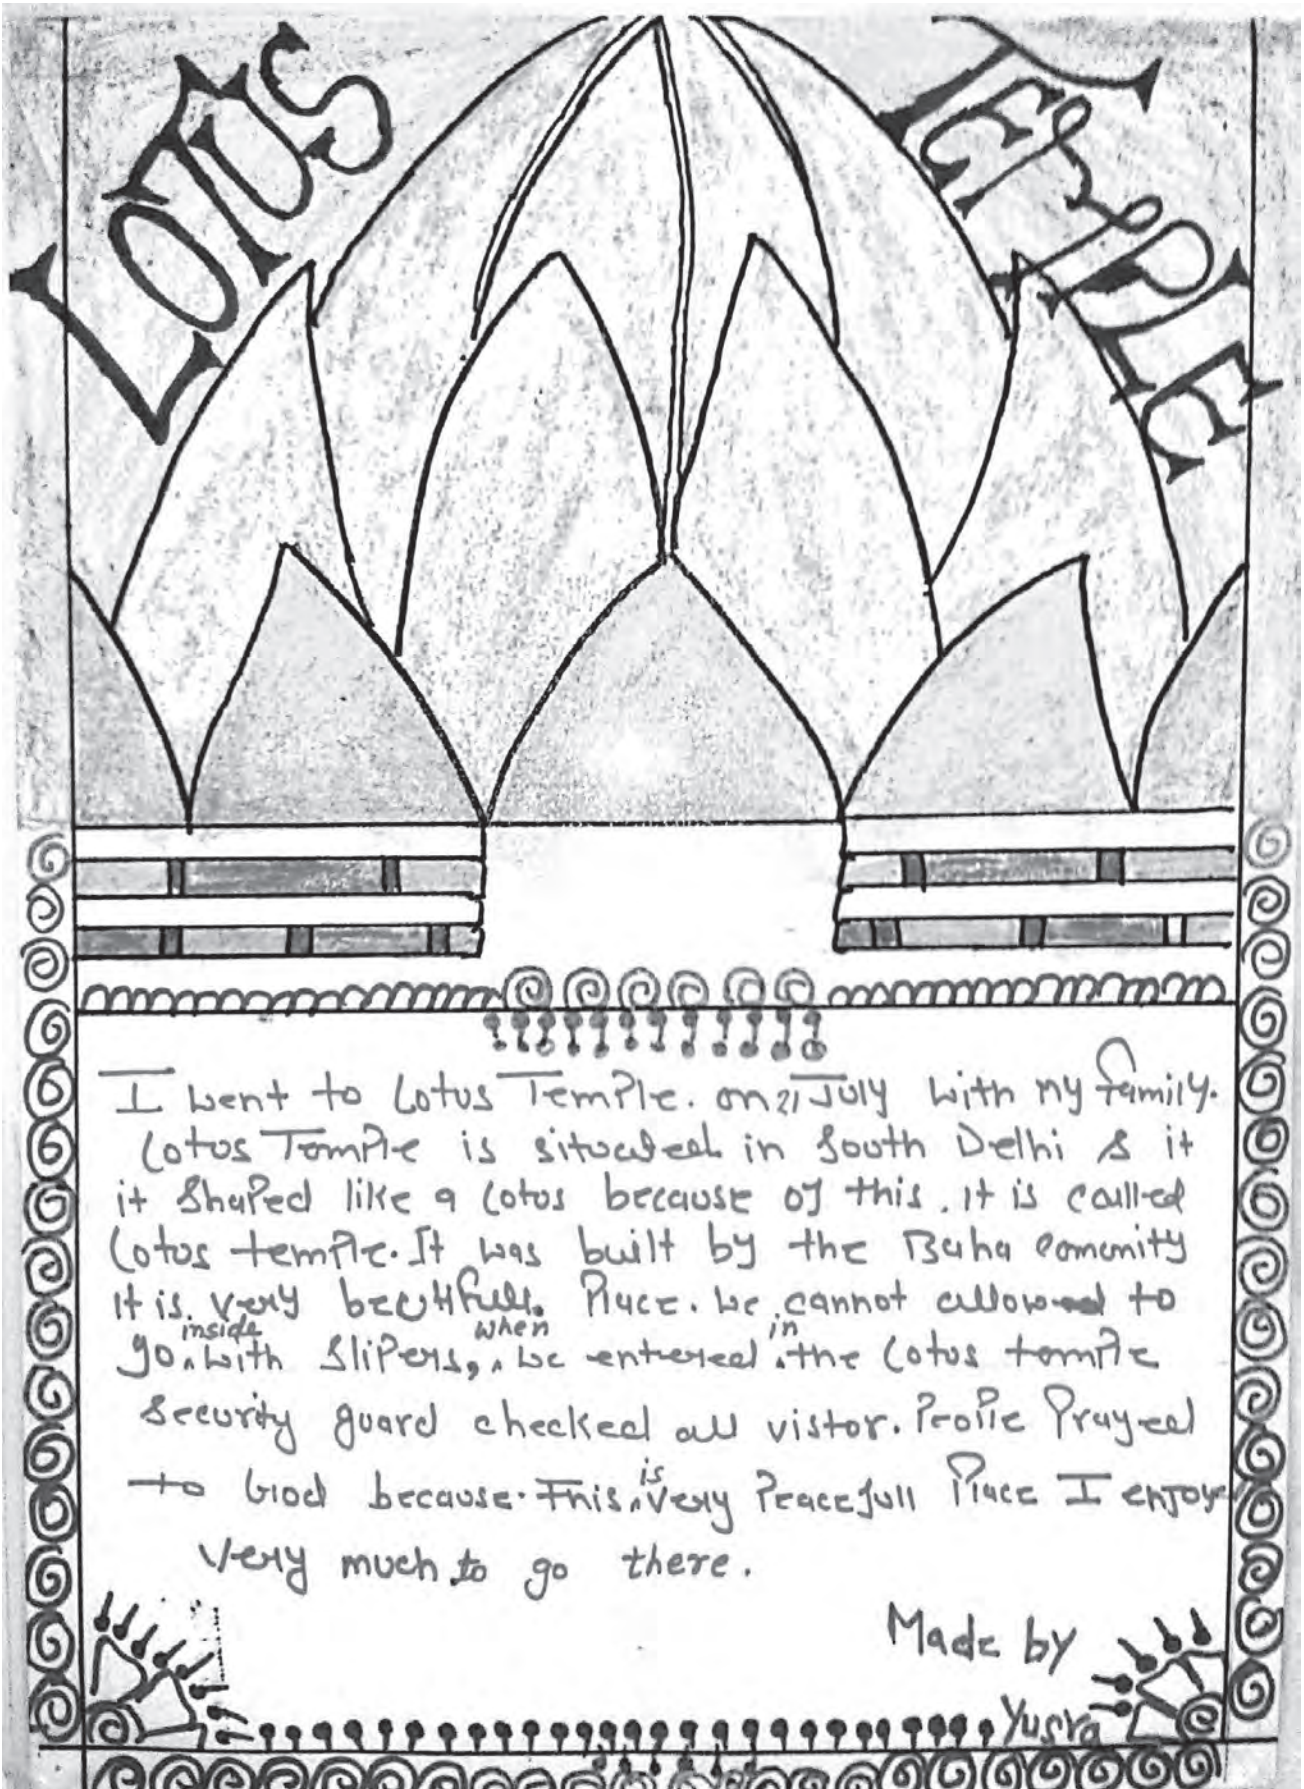 LOTUS TEMPLE
I went to Lotus Temple. on 21 July with my family.
Lotus Temple is situated in South Delhi & it
it shaped like a lotus because of this. it is called
Lotus temple. It was built by the Baha comunity
it is very beutifull. Place. We cannot allowed to
go inside with slipers, when we entered in the Lotus temple
security guard checked all vistor. People Prayed
to God because. This is very Peacefull Place I enjoye
very much to go there.
Made by
Yusra